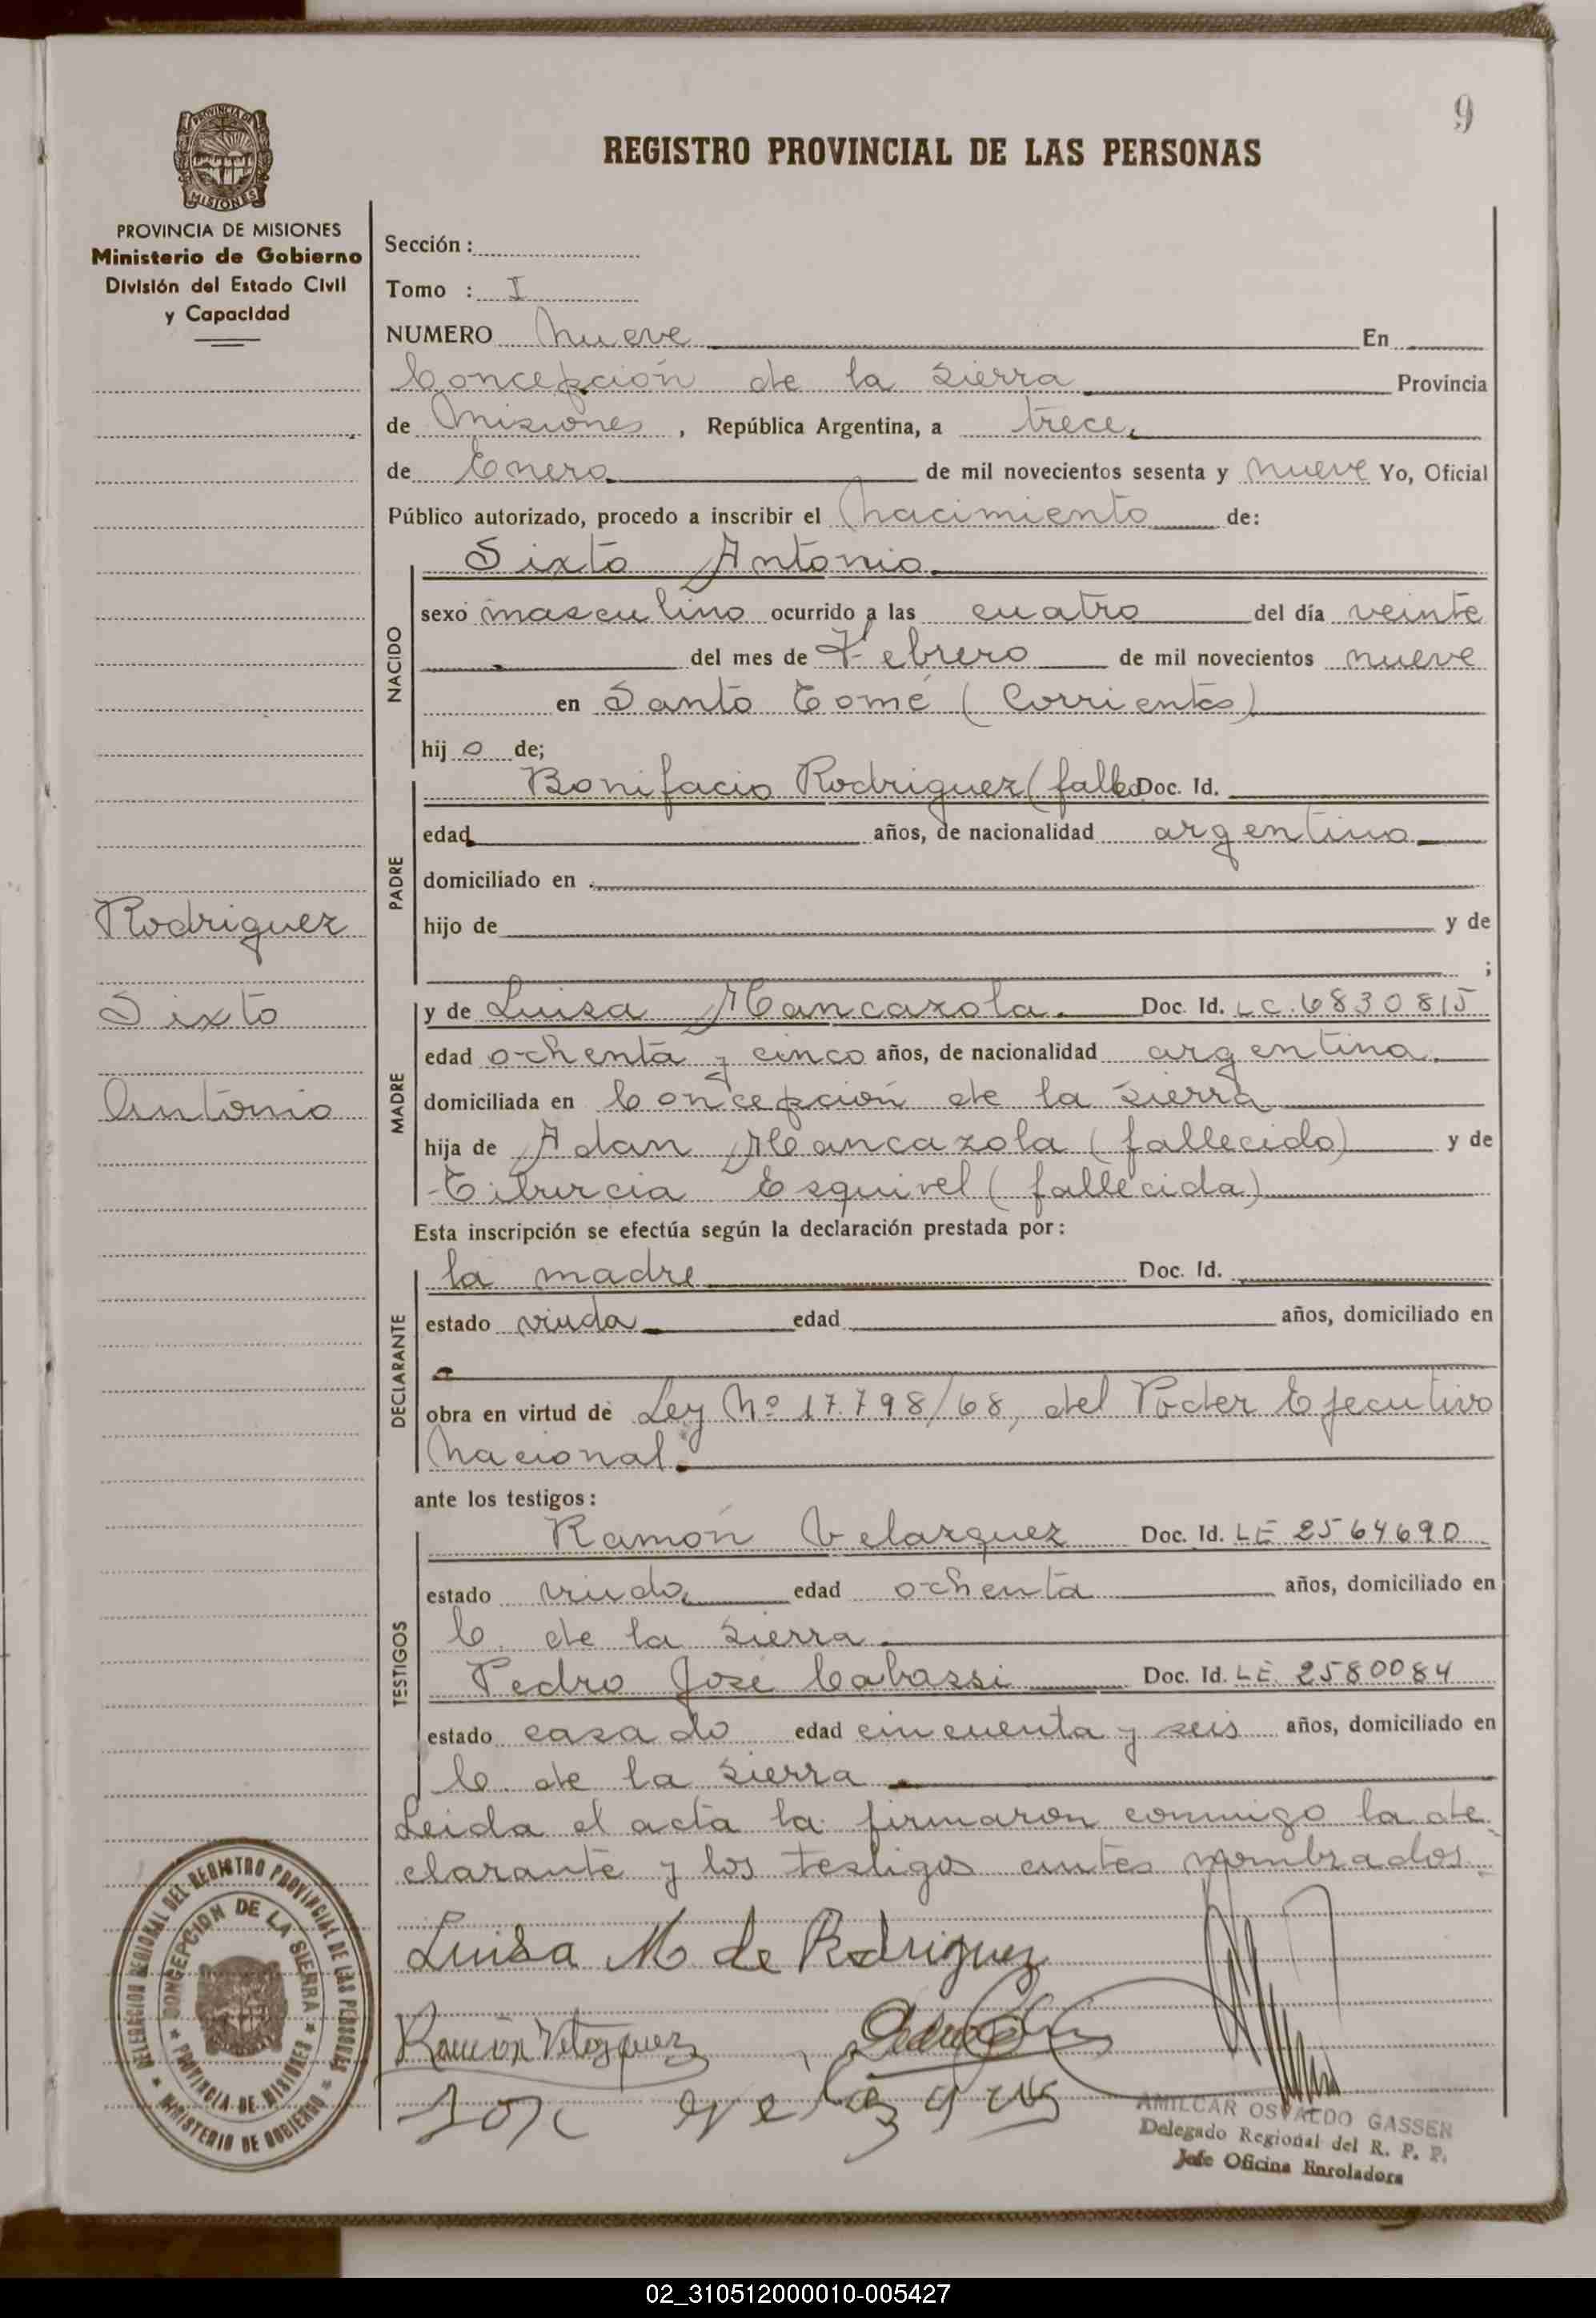 9
REGISTRO PROVINCIAL DE LAS PERSONAS
PROVINCIA DE MISIONES
MISIONES
PROVINCIA DE MISIONES
Ministerio de Gobierno
División del Estado Civil
y Capacidad
Rodriguez
Sixto
Antonio
Sección :
Tomo : I
NUMERO Nueve En
Concepción de la Sierra Provincia
de Misiones , República Argentina, a trece
de Enero de mil novecientos sesenta y nueve Yo, Oficial
Público autorizado, procedo a inscribir el Nacimiento de:
NACIDO
Sixto Antonio
sexo masculino ocurrido a las cuatro del día veinte
del mes de Febrero de mil novecientos nueve
en Santo Tomé (Corrientes)
hij o de;
PADRE
Bonifacio Rodriguez (falldo Doc. Id.
edad años, de nacionalidad argentino
domiciliado en
hijo de y de
;
MADRE
y de Luisa Mancazola. Doc. Id. LC. 6830815
edad ochenta y cinco años, de nacionalidad argentina.
domiciliada en Concepción de la Sierra
hija de Adan Mancazola (fallecido) y de
Tiburcia Esquivel (fallecida)
Esta inscripción se efectúa según la declaración prestada por:
DECLARANTE
la madre Doc. Id.
estado viuda edad años, domiciliado en
obra en virtud de Ley Nº 17.798/68, del Poder Ejecutivo
Nacional.
ante los testigos:
TESTIGOS
Ramón Velazquez Doc. Id. LE 2564690
estado viudo edad ochenta años, domiciliado en
C. de la Sierra
Pedro José Cabassi Doc. Id. LE. 2580084
estado casado edad cincuenta y seis años, domiciliado en
C. de la Sierra
Leida el acta la firmaron conmigo la de
clarante y los testigos antes nombrados.
Luisa M de Rodriguez
Ramón Velazquez
DELEGACION REGIONAL DEL REGISTRO PROVINCIAL DE LAS PERSONAS
CONCEPCION DE LA SIERRA
PROVINCIA DE MISIONES
MINISTERIO DE GOBIERNO
AMILCAR OSVALDO GASSEN
Delegado Regional del R. P. P.
Jefe Oficina Enroladora
02_310512000010-005427